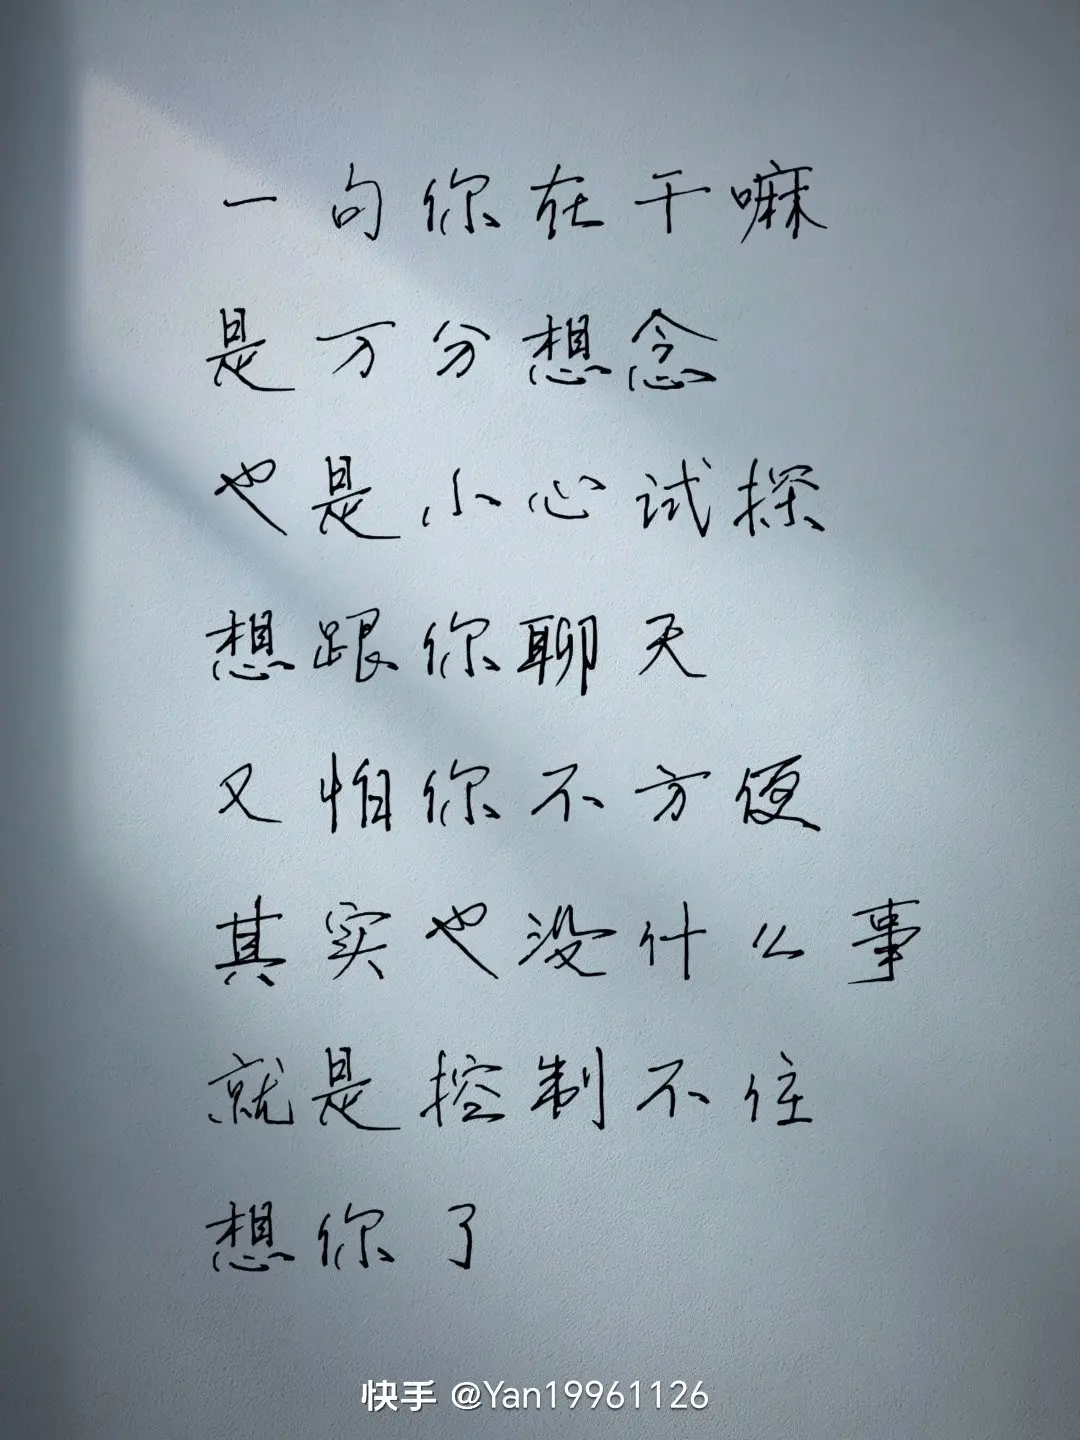 一句你在干嘛
是万分想念
也是小心试探
想跟你聊天
又怕你不方便
其实也没什么事
就是控制不住
想你了
快手 @Yan19961126